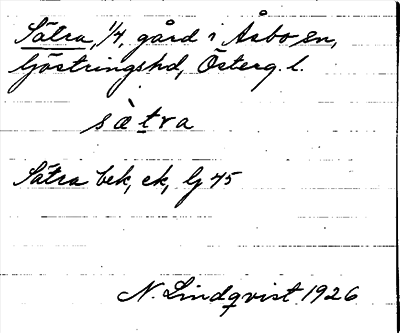 Sätra, 1/4, gård i Åsbo sn,
Göstringshd, Österg. l.
sætra
Sätra bek, ek, lj 45
N. Lindqvist 1926